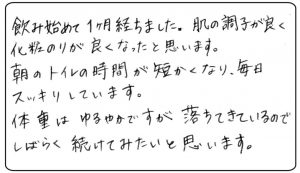 飲み始めて1ヶ月経ちました。肌の調子が良く
化粧のりが良くなったと思います。
朝のトイレの時間が短かくなり、毎日
スッキリしています。
体重はゆるやかですが落ちてきているので
しばらく続けてみたいと思います。